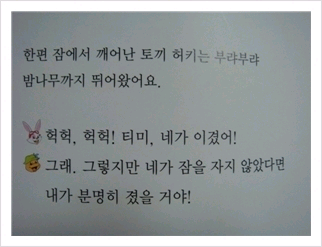 한편 잠에서 깨어난 토끼 허키는 부랴부랴
밤나무까지 뛰어왔어요.
헉헉, 헉헉! 티미, 네가 이겼어!
그래. 그렇지만 네가 잠을 자지 않았다면
내가 분명히 졌을 거야!